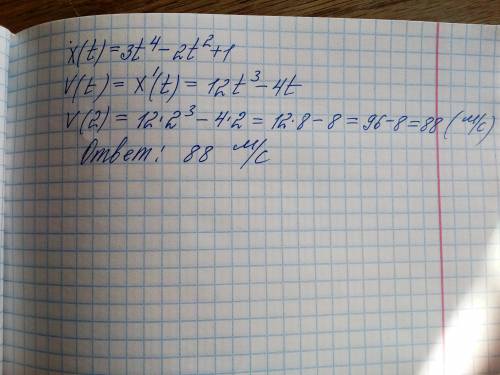 x(t)=3t⁴-2t²+1
V(t) = x'(t) = 12t³-4t
V(2) = 12·2³-4·2 = 12·8-8 = 96-8=88 (м/с)
Ответ: 88 м/с